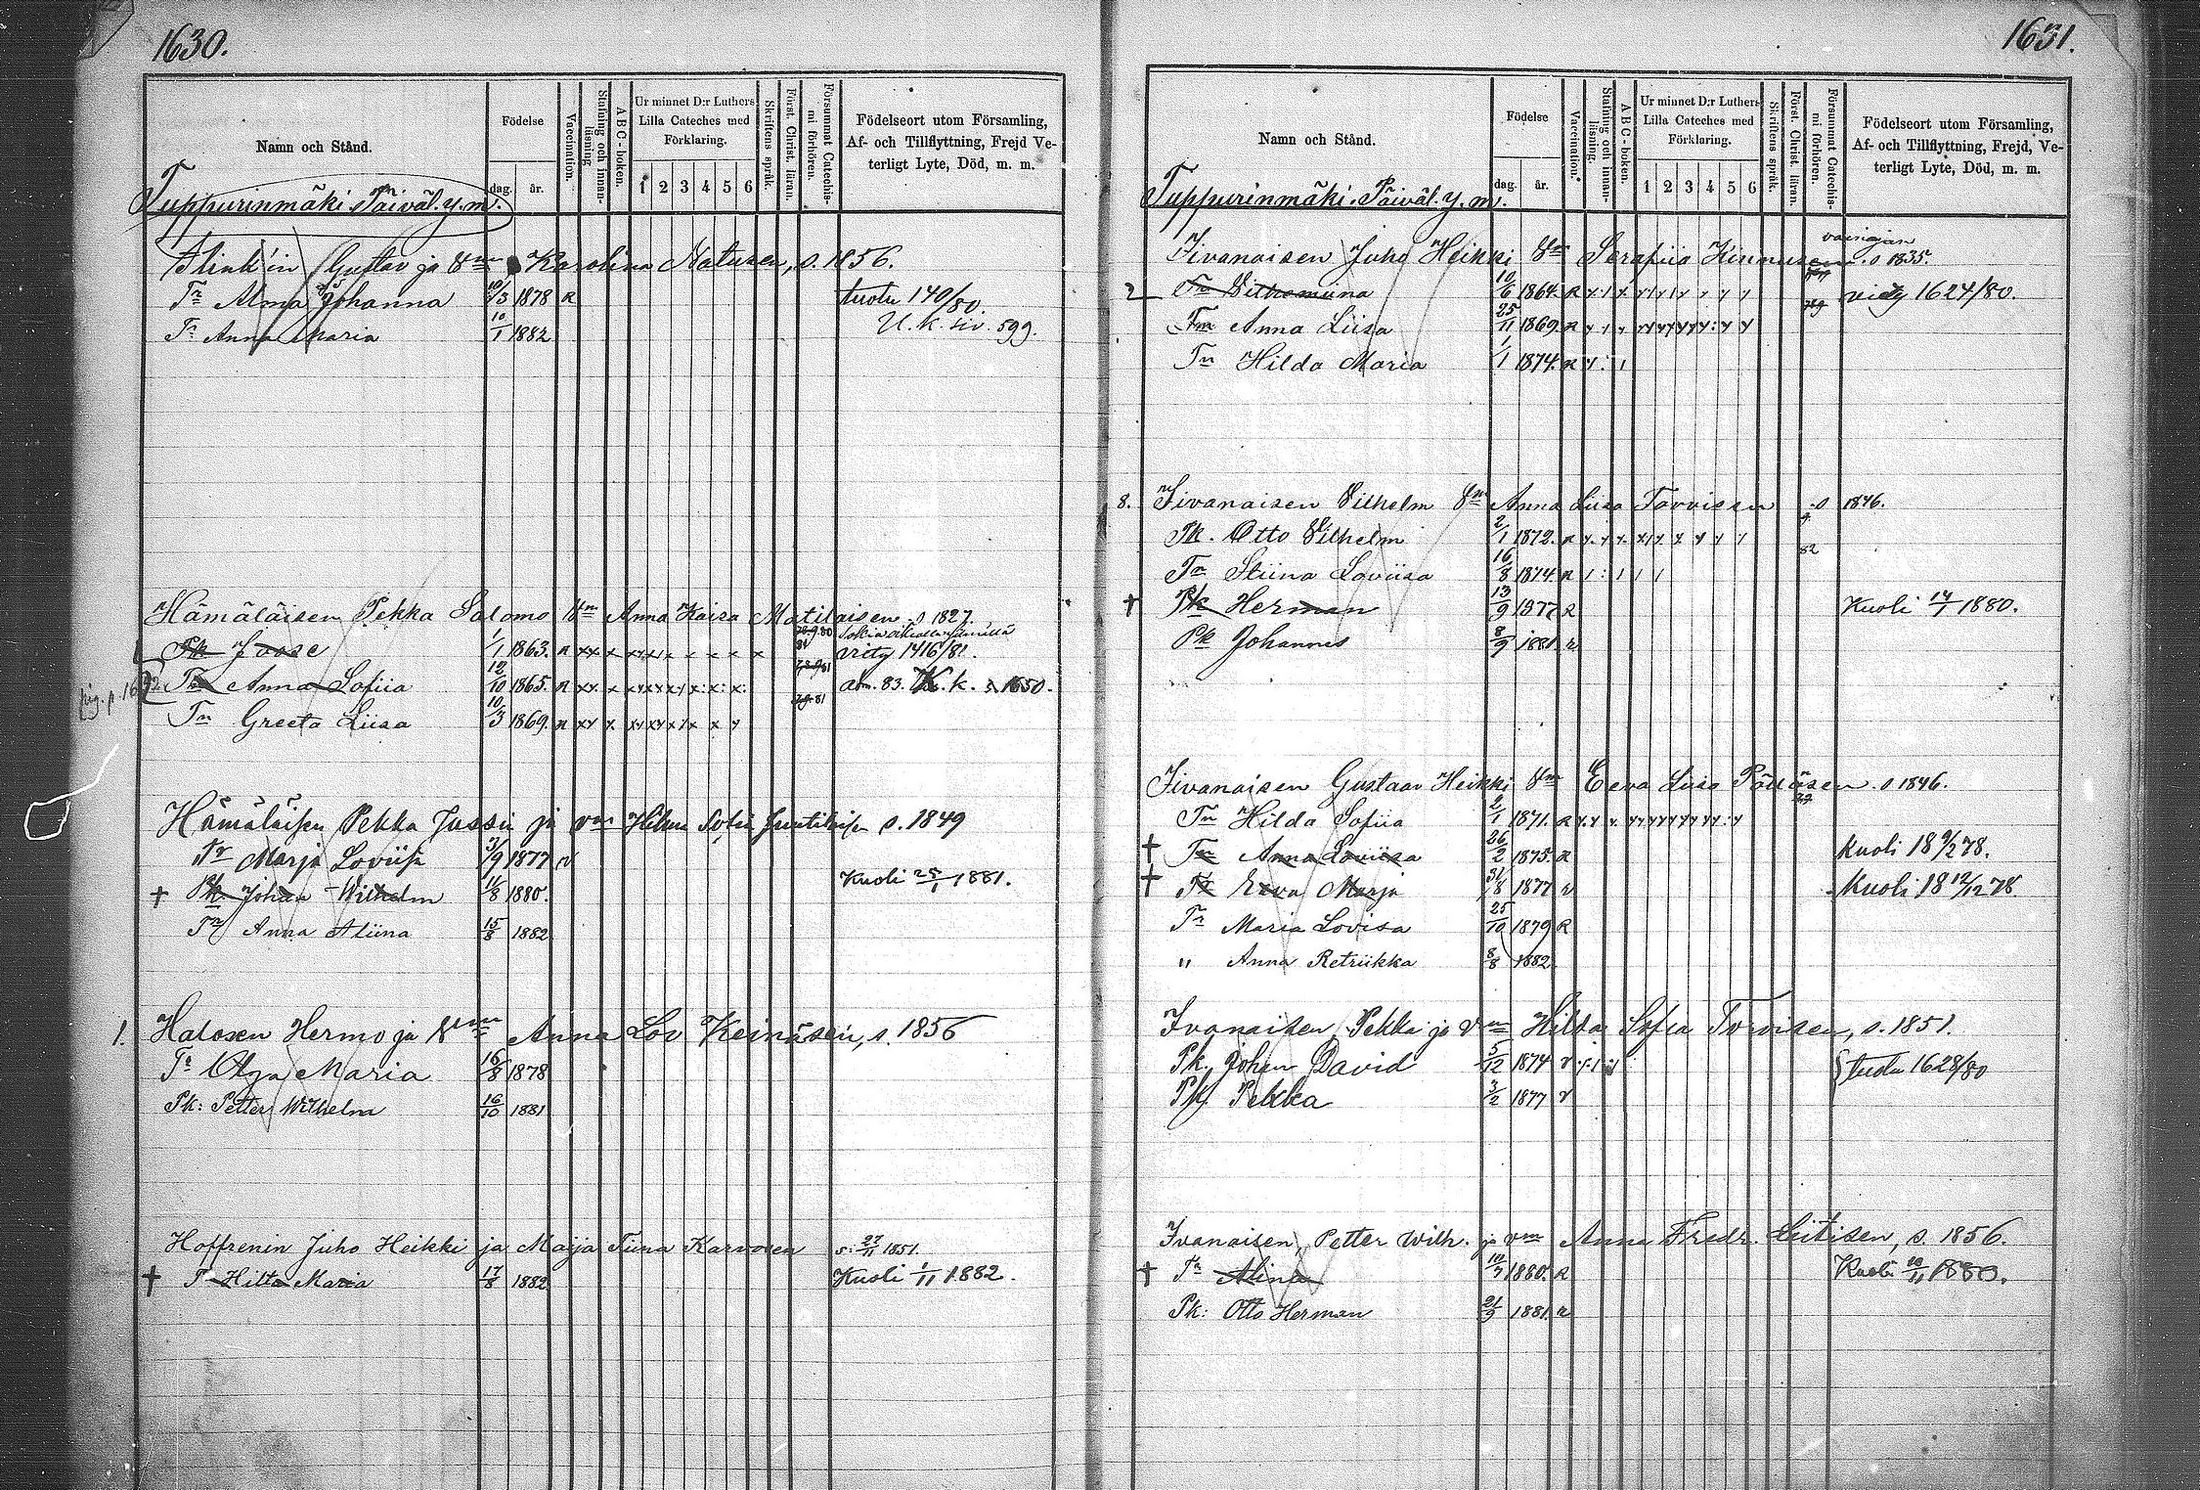 1630.
Namn och Stånd.
Födelse
dag. år.
Vaccination.
Stafning och innanläsning.
A B C - boken.
Ur minnet D:r Luthers Lilla Cateches med Förklaring.
1 2 3 4 5 6
Skriftens språk.
Först. Christ. läran.
Försummat Catechismi förhören.
Födelseort utom Församling,
Af- och Tillflyttning, Frejd Ve-
terligt Lyte, Död, m. m.
Tuppurinmäki Päiväl. y. m.
Blink'in Gustav ja Vm Karolina Natusen, s. 1856.
Tr Alma Johanna 10/3 1878 R tuotu 140/80.
Tr Anna Maria 10/1 1882 U. k. siv. 599.
Hämäläisen Pekka Salomo Vm Anna Kaisa Matilaisen s 1827.
Pk Joose 1/1 1863. R viety 1416/81.
Tn Anna Sofiia 12/10 1865. R
Tn Greeta Liisa 10/3 1869. R
Hämäläisen Pekka Jussi ja vm s. 1849
Tr Marja Loviisa 3/9 1877 v
† Pk Johan Wilhelm 11/8 1880. Kuoli 25/1 1881.
Tr Anna Aliina 15/8 1882
1. Halosen Hermo ja Vm Anna Lov Keinäsen, s. 1856
Tr Olga Maria 16/8 1878
Pk: Petter Wilhelm 16/10 1881
Hoffrenin Juho Heikki ja Maija Tiina Karvosen s: 27/11 1851.
† T Hilta Maria 17/8 1882 Kuoli 1/11 1882.
1631.
Namn och Stånd.
Födelse
dag. år.
Vaccination.
Stafning och innanläsning.
A B C - boken.
Ur minnet D:r Luthers Lilla Cateches med Förklaring.
1 2 3 4 5 6
Skriftens språk.
Först. Christ. läran.
Försummat Catechismi förhören.
Födelseort utom Församling,
Af- och Tillflyttning, Frejd, Ve-
terligt Lyte, Död, m. m.
Tuppurinmäki. Päiväl. y. m.
Iivanaisen Juho Heikki Vm Serafiia Kinnusen s 1835.
2 Tn Vilhemiina 10/6 1864. R viety 1624/80.
Tn Anna Liisa 25/11 1869. R
Tn Hilda Maria 1/1 1874. R
8. Iivanaisen Vilhelm Vm Anna Liisa Torvisen s 1846.
Pk. Otto Vilhelm 2/1 1872. R
Tn Stiina Loviisa 16/8 1874 R
† Pk Herman 13/9 1877 R Kuoli 14/1 1880.
Pk Johannes 8/9 1881. R
Iivanaisen Gustaav Heikki Vm Eeva Liisa Pöllösen s 1846.
Tn Hilda Sofiia 2/1 1871. R
† Tn Anna Loviisa 26/2 1875. R Kuoli 18 9/2 78.
† Tr Eeva Marja 31/8 1877 v Kuoli 18 12/12 78
Tr Maria Lovisa 25/10 1879 R
" Anna Retriikka 8/8 1882
Ivanaisen Pekka ja Vm Hilda Sofia Torvisen, s. 1851.
Pk. Johan David 5/12 1874 v tuotu 1628/80
Pk. Pekka 3/2 1877 v
Ivanaisen, Petter Wilh. ja vm Anna Fredr. Liitisen, s. 1856.
† Tr Alina 10/7 1880. R Kuoli 20/11 1880.
Pk: Otto Herman 21/9 1881. R